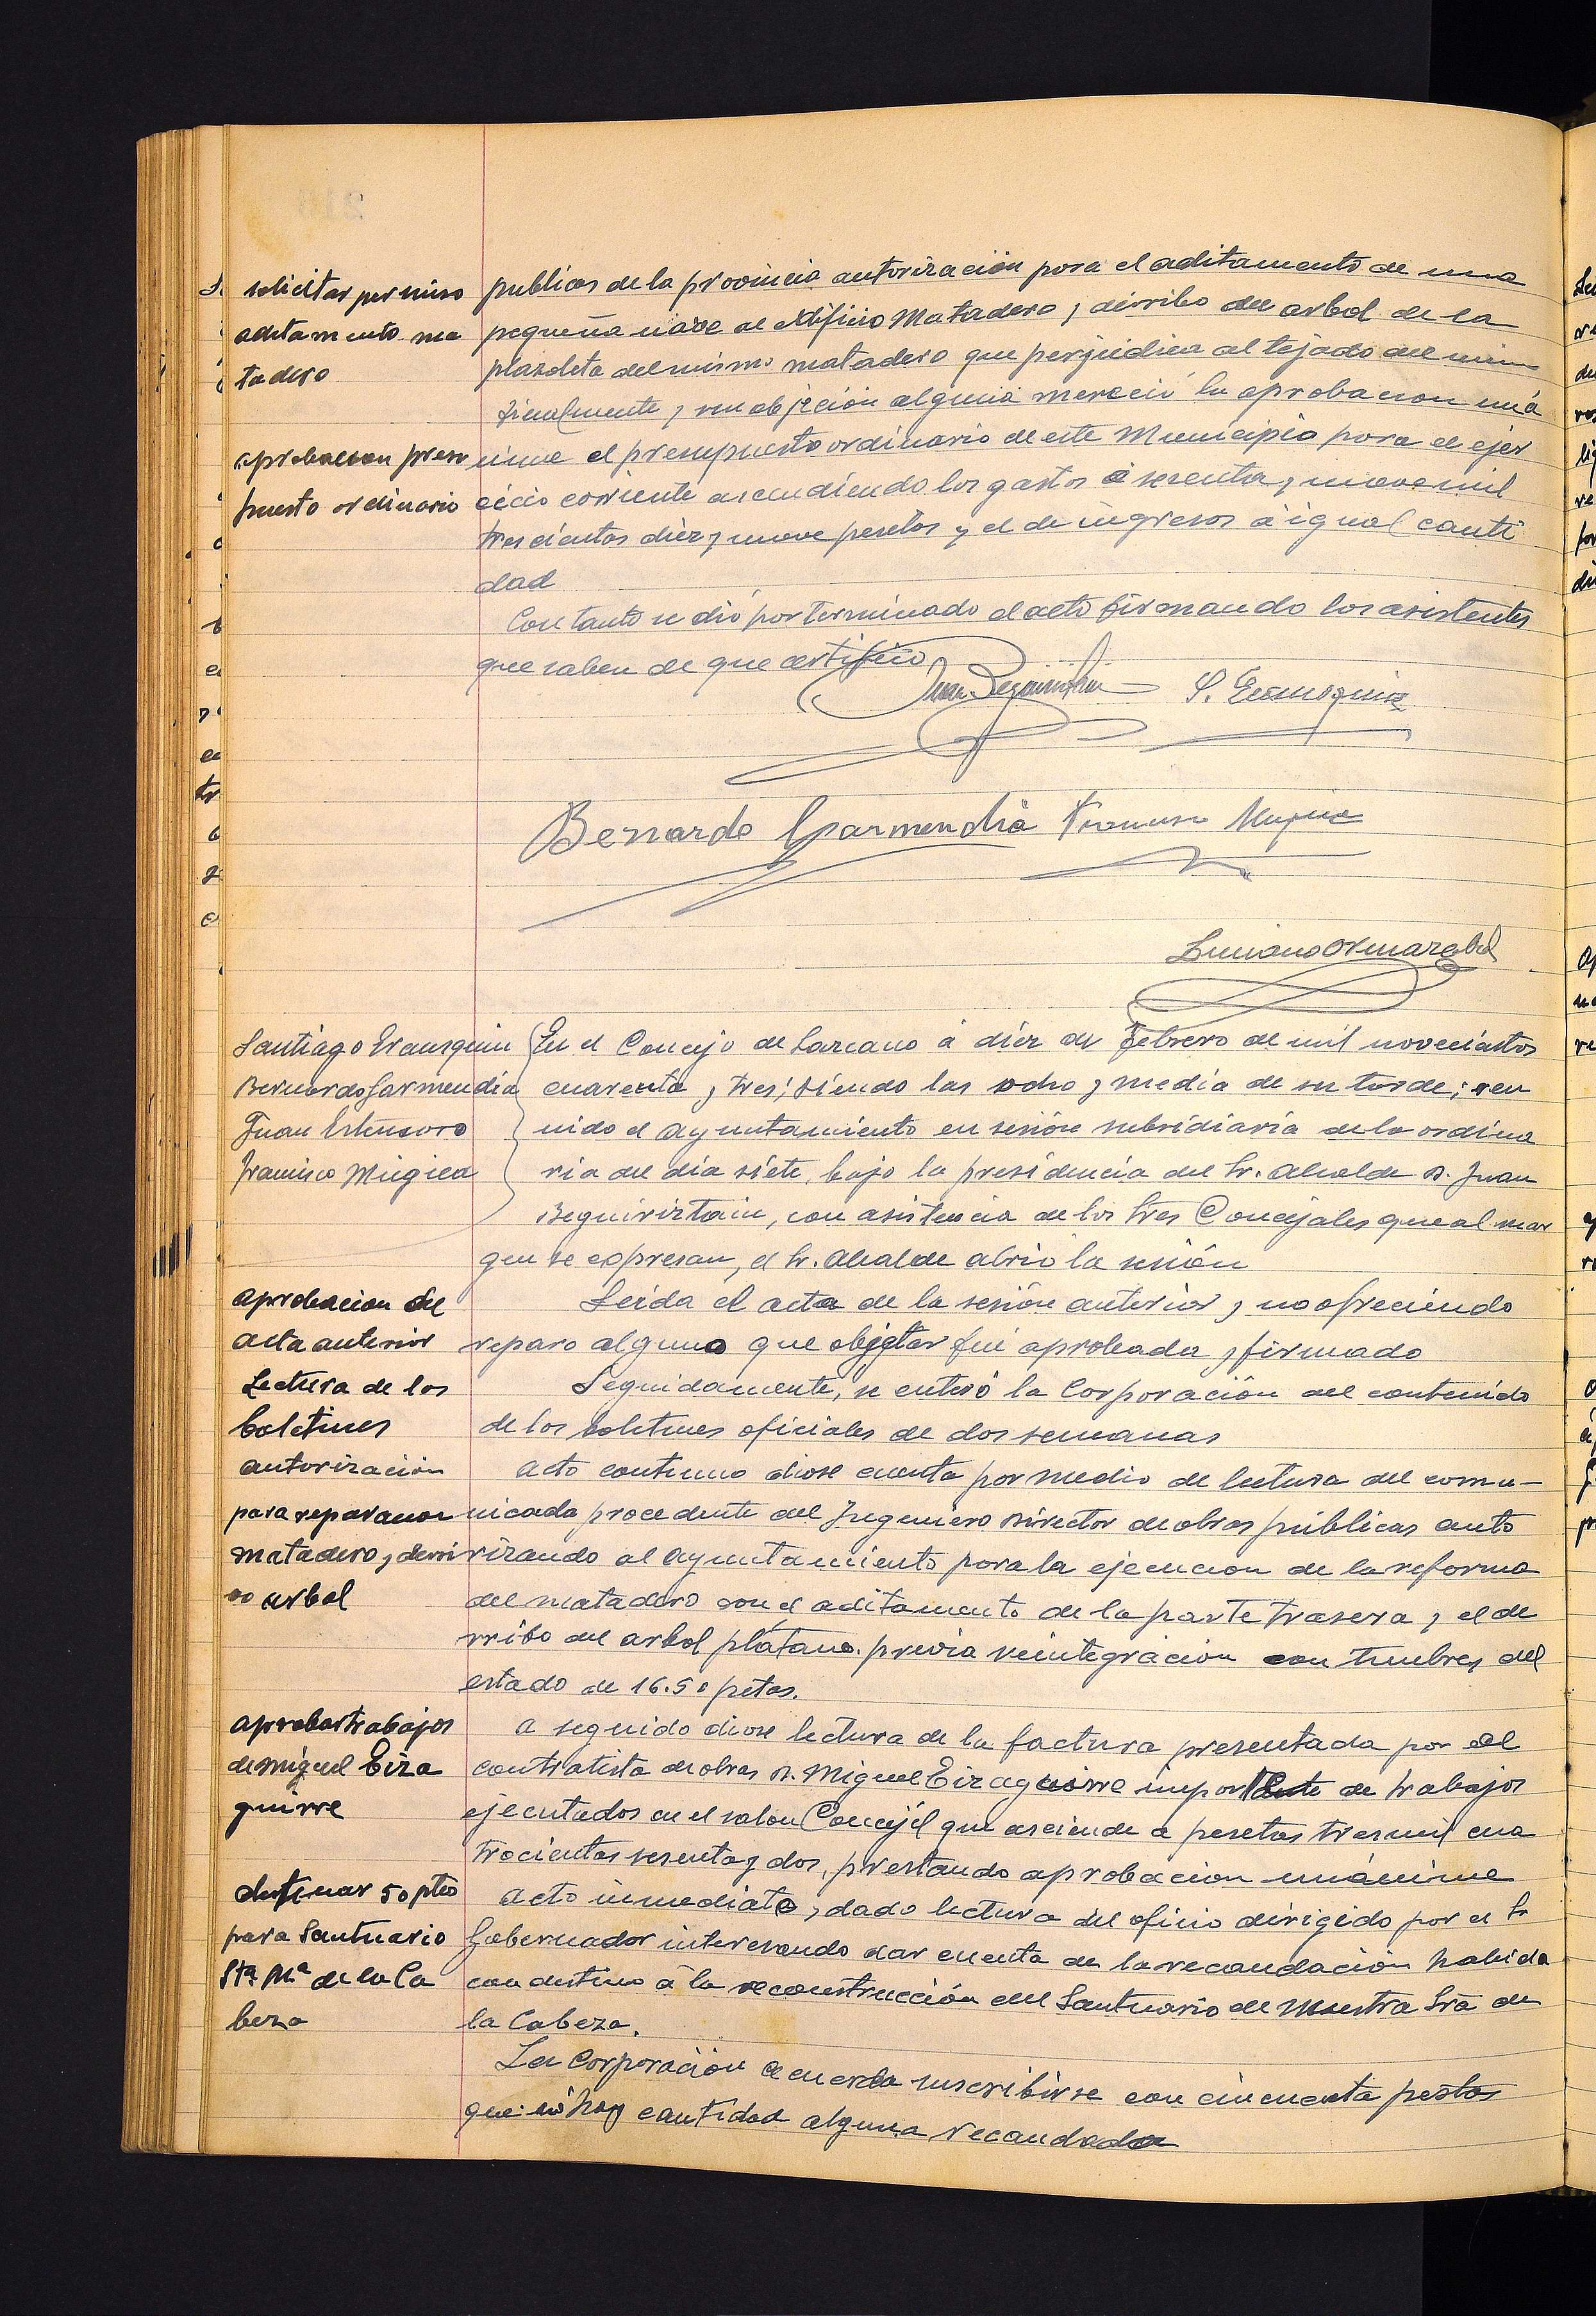 solicitar permiso
aditamento ma
tadero
publicas de la provincia autorización para el aditamento de una
pequeña nave al edificio Matadero y derribo del arbol de la
plazoleta del mismo matadero que perjudica al tejado del mismo
aprobacion presu
puesto ordinario
Finalmente y sin objeción alguna mereció la aprobacion uná
nime el presupuesto ordinario de este Municipio para el ejer
cicio corriente ascendiendo los gastos á sesenta y nueve mil
trescientas diez y nueve pesetas y el de ingresos á igual canti
dad
Con tanto se dió por terminado el acto firmando los asistentes
que saben de que certifico
Juan Beguiristain S. Erausquin
Bernardo Garmendia Francisco Mugica
Luciano
Santiago Erausquin
Bernardo Garmendia
Juan
Francisco Mugica
En el Concejo de Lazcano á diez de Febrero de mil novecientos
cuarenta y tres; siendo las ocho y media de su tarde; reu
nido el Ayuntamiento en sesión subsidiaria de la ordina
ria del dia siete, bajo la presidencia del Sr. Alcalde D. Juan
Beguiriztain, con asistencia de los tres Concejales que al mar
gen se expresan, el Sr. Alcalde abrió la sesión
aprobacion del
acta anterior
Leida el acta de la sesión anterior y no ofreciendo
reparo alguno que objetar fué aprobada y firmado
Lectura de los
boletines
Seguidamente, se enteró la Corporación del contenido
de los boletines oficiales de dos semanas
autorización
para reparacion
matadero y derri
bo arbol
Acto continuo diose cuenta por medio de lectura del comu-
nicado procedente del Ingeniero Director de obras públicas auto
rizando al Ayuntamiento para la ejecucion de la reforma
del matadero con el aditamento de la parte trasera y el de
rribo del arbol plátano previa reintegración con timbres del
estado de 16.50 petas.
aprobar trabajos
de Miguel Eiza
guirre
A seguido diose lectura de la factura presentada por el
contratista de obras D. Miguel Eizaguirre importante de trabajos
ejecutados en el salon Concejil que asciende a pesetas tres mil cua
trocientas sesenta y dos, prestando aprobacion unánime
destinar 50 ptas
para Santuario
Stª Mª de la Ca
beza
Acto inmediato, dado lectura del oficio dirigido por el Sr
Gobernador interesando dar cuenta de la recaudación habida
con destino á la reconstrucción del Santuario de Nuestra Sra de
la Cabeza.
La Corporación acuerda suscribirse con cincuenta pestas
que no hay cantidad alguna recaudada